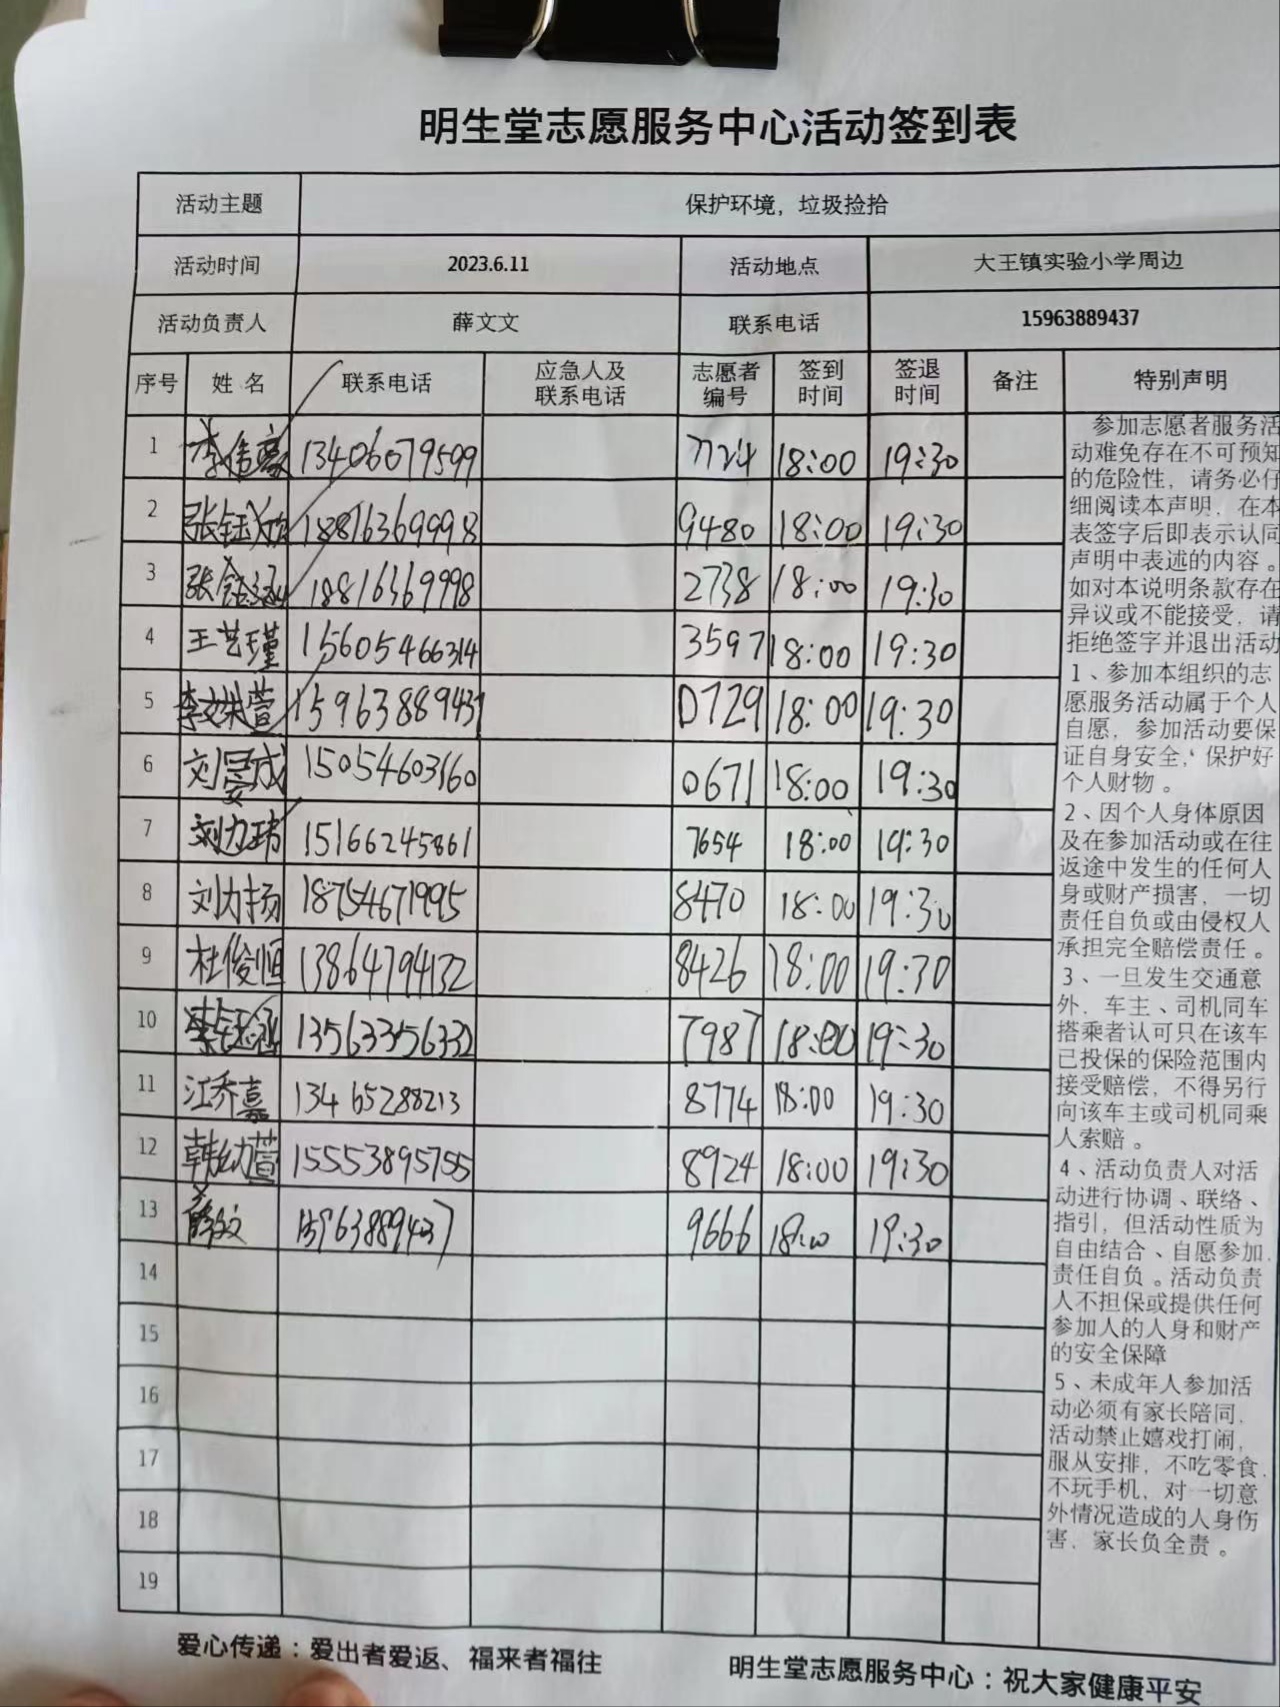 明生堂志愿服务中心活动签到表
活动主题 保护环境，垃圾捡拾
活动时间 2023.6.11 活动地点 大王镇实验小学周边
活动负责人 薛文文 联系电话 15963889437
序号 姓名 联系电话 应急人及联系电话 志愿者编号 签到时间 签退时间 备注 特别声明
1 李倩豪 13406079599 7724 18:00 19:30
2 张钰 18816369998 9480 18:00 19:30
3 张钰涵 18816369998 2738 18:00 19:30
4 王艺瑾 15605466314 3597 18:00 19:30
5 李姝萱 15963889437 0729 18:00 19:30
6 刘晏成 15054603160 0671 18:00 19:30
7 刘力玮 15166245861 7654 18:00 19:30
8 刘力扬 18754671995 8470 18:00 19:30
9 杜俊恒 13864794132 8426 18:00 19:30
10 李钰涵 13563356332 7987 18:00 19:30
11 江乔嘉 13465288213 8774 18:00 19:30
12 韩幼萱 15553895755 8924 18:00 19:30
13 薛文文 15963889437 9666 18:00 19:30
14
15
16
17
18
19
参加志愿者服务活
动难免存在不可预知
的危险性，请务必仔
细阅读本声明，在本
表签字后即表示认同
声明中表述的内容。
如对本说明条款存在
异议或不能接受，请
拒绝签字并退出活动
1、参加本组织的志
愿服务活动属于个人
自愿，参加活动要保
证自身安全，保护好
个人财物。
2、因个人身体原因
及在参加活动或在往
返途中发生的任何人
身或财产损害，一切
责任自负或由侵权人
承担完全赔偿责任。
3、一旦发生交通意
外，车主、司机同车
搭乘者认可只在该车
已投保的保险范围内
接受赔偿，不得另行
向该车主或司机同乘
人索赔。
4、活动负责人对活
动进行协调、联络、
指引，但活动性质为
自由结合、自愿参加，
责任自负。活动负责
人不担保或提供任何
参加人的人身和财产
的安全保障
5、未成年人参加活
动必须有家长陪同，
活动禁止嬉戏打闹，
服从安排，不吃零食，
不玩手机，对一切意
外情况造成的人身伤
害，家长负全责。
爱心传递：爱出者爱返、福来者福往
明生堂志愿服务中心：祝大家健康平安